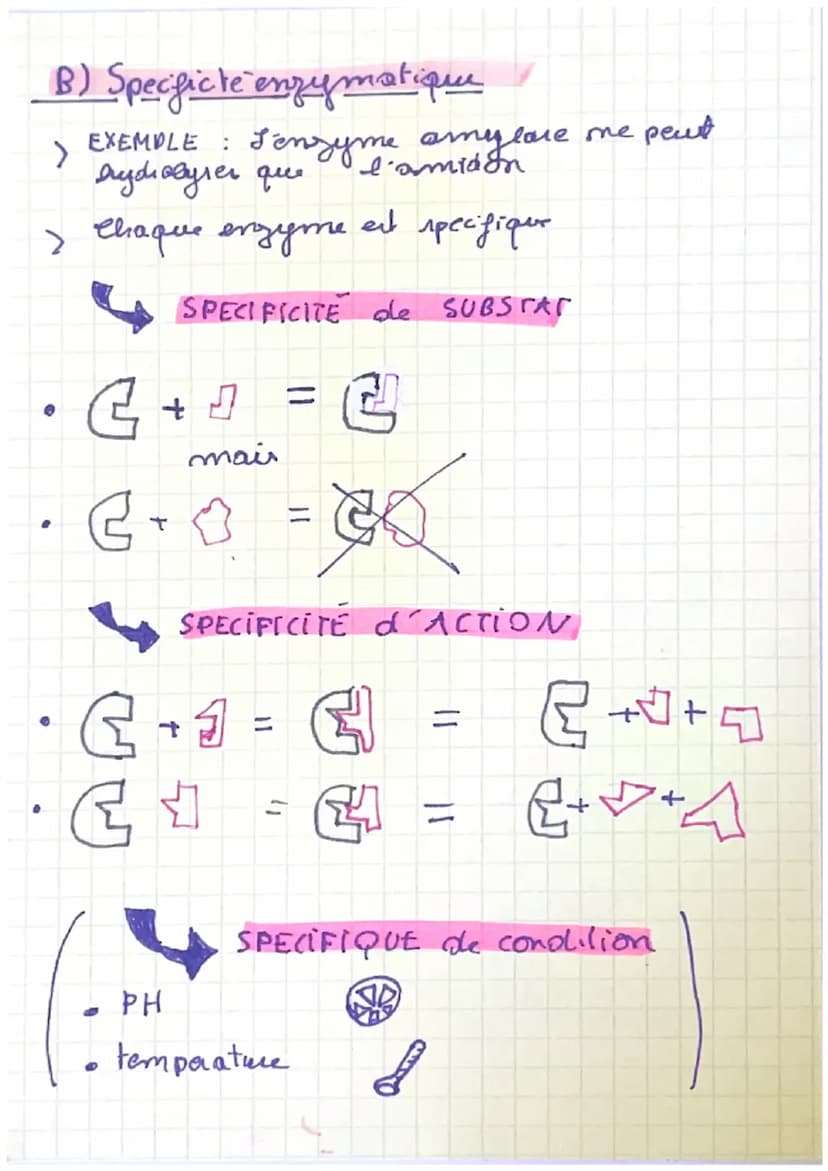 B) Specficté enzymatique
> EXEMPLE : L'enzyme amylase ne peut
hydrolyser que l'amidon
> Chaque enzyme est specifique
SPECIFICITÉ de SUBSTAT
• + =
mais
• + =
SPECIFICITÉ d'ACTION
• + = = + +
• = = + +
( SPECIFIQUE de condition )
• PH
• temperature